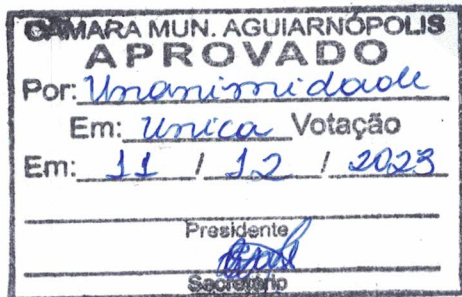 CÂMARA MUN. AGUIARNÓPOLIS
APROVADO
Por: Unanimidade
Em: Unica Votação
Em: 11 / 12 / 2023
Presidente
Secretário